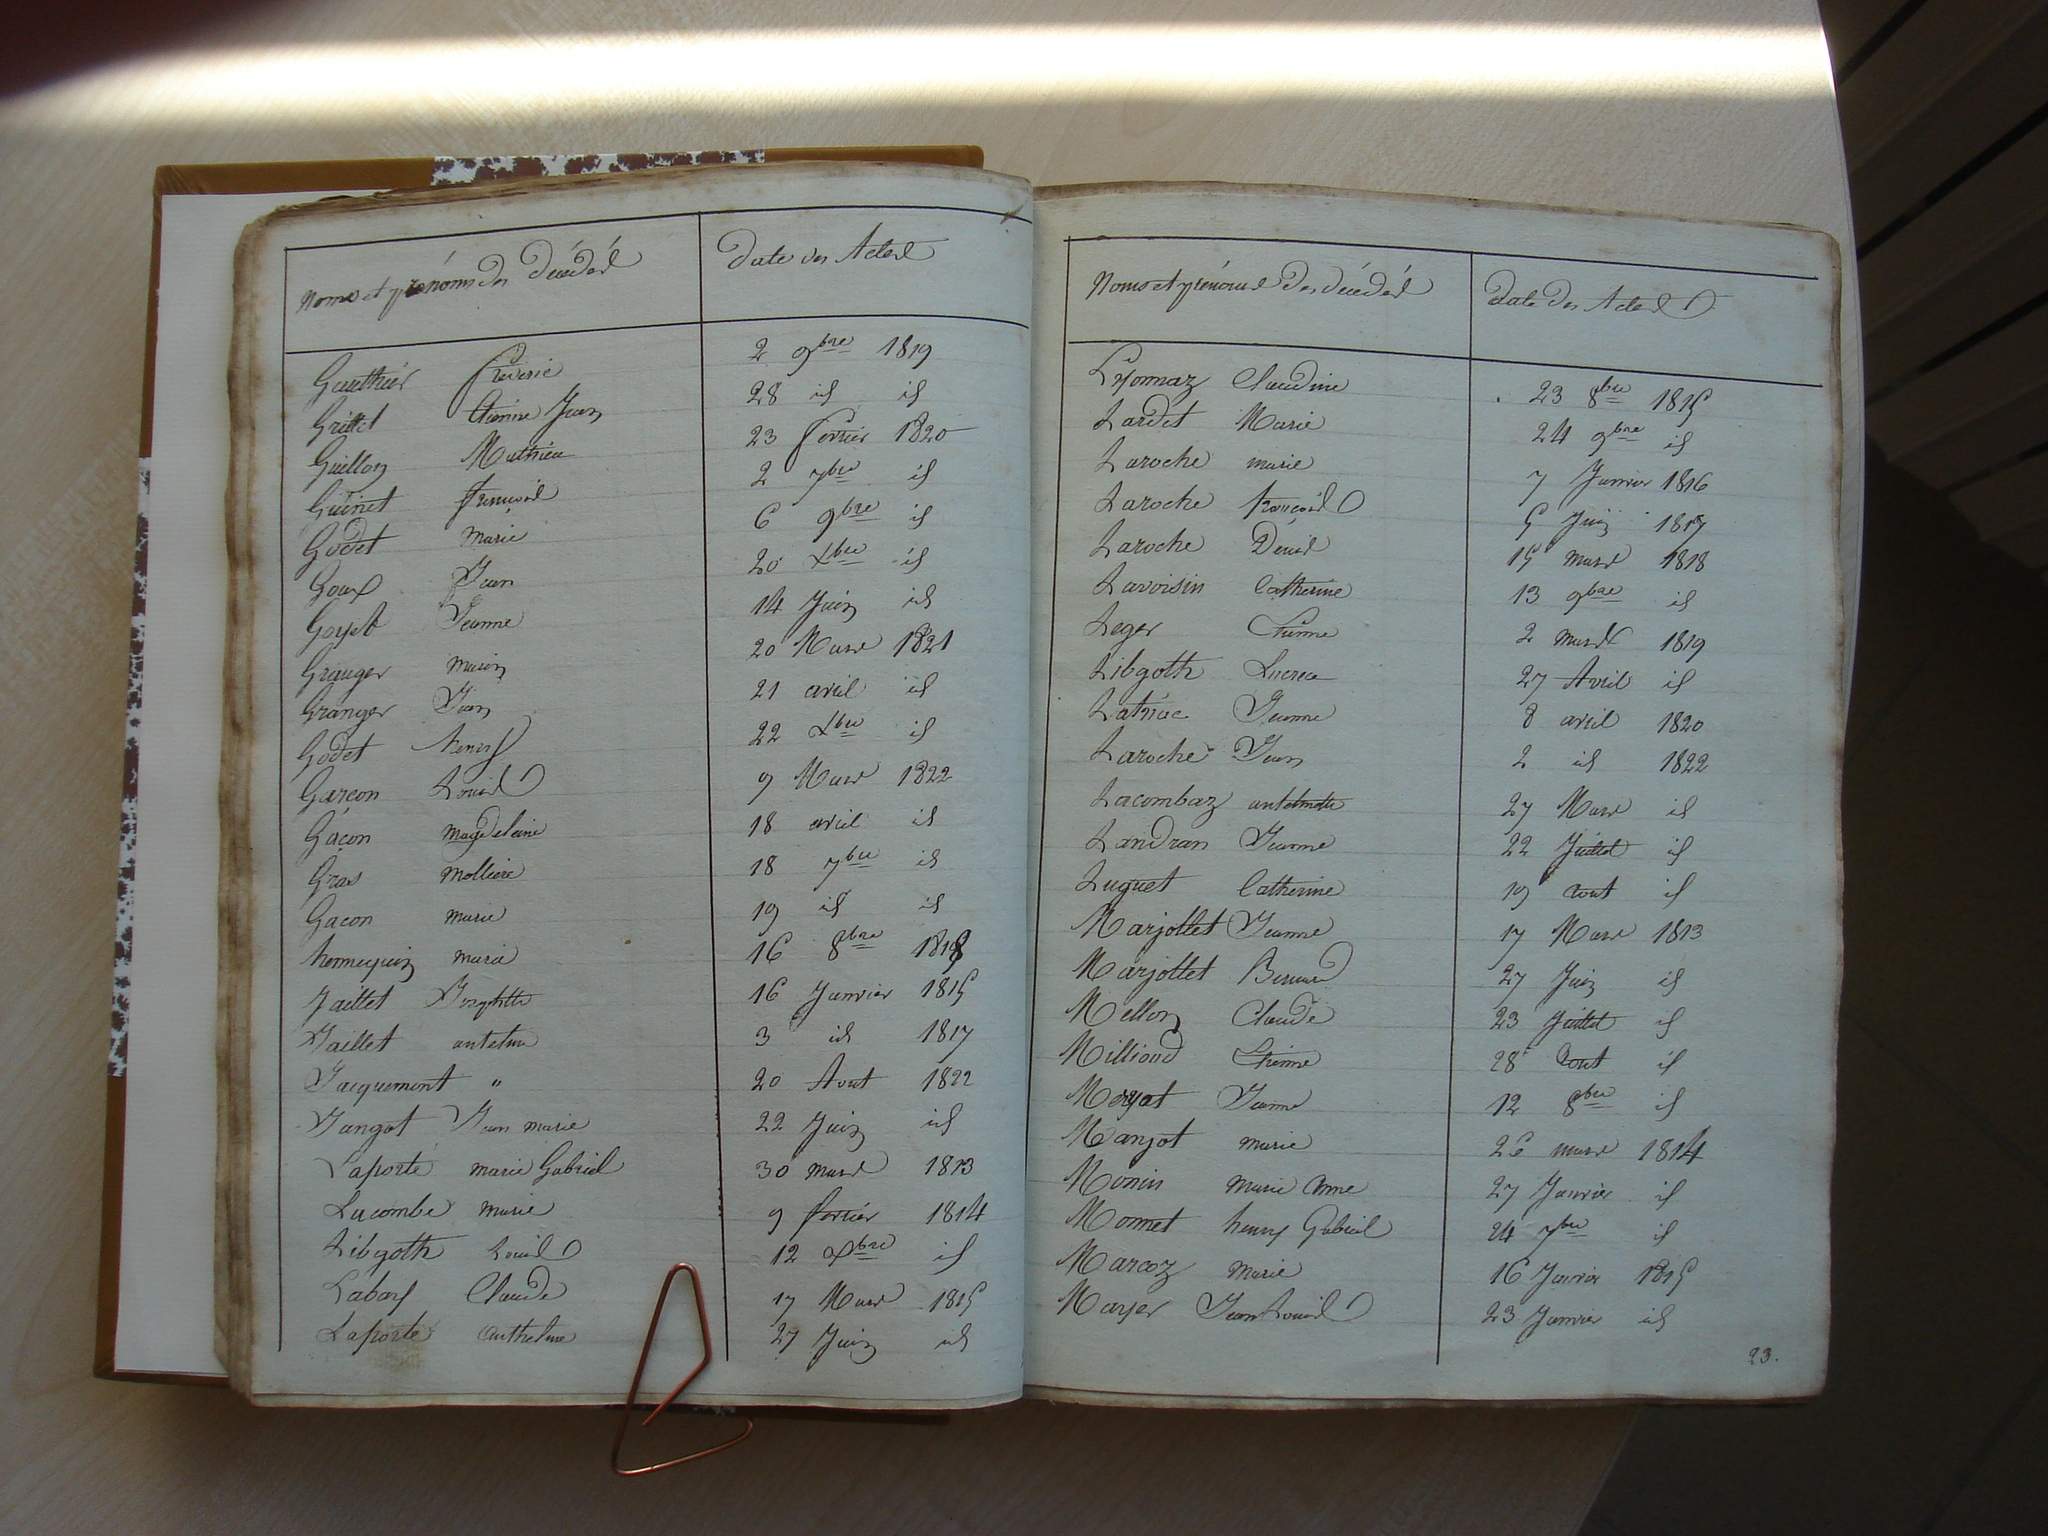 Noms et prénoms des décédés Date des Actes
Gauthier 2 9bre 1819
Grillet Etienne Jean 28 id id
Guillon Mathieu 23 fevrier 1820
Guinet françois 2 7bre id
Godet marie 6 9bre id
Goux Jean 20 Xbre id
Goyet Jeanne 14 Juin id
Granger marin 20 Mars 1821
Granger Jean 21 avril id
Godet henry 22 Xbre id
Garçon Louis 9 Mars 1822
Gaçon magdeleine 18 avril id
Gras Molliere 18 7bre id
Gacon marie 19 id id
hennequin marie 16 8bre 1818
Jaillet Josephte 16 Janvier 1815
Jaillet antelme 3 id 1817
Jacquemont " 20 Aout 1822
Jangot Jean marie 22 Juin id
Laporte marie Gabriel 30 mars 1813
Lacombe marie 9 fevrier 1814
Libgoth Louis 12 Xbre id
Labory Claude 17 Mars 1815
Laporte anthelme 27 Juin id
Noms et prénoms des décédés Date des Actes
Lyonnaz Claudine 23 8bre 1815
Lardet Marie 24 9bre id
Laroche marie 7 Janvier 1816
Laroche françois 5 Juin 1817
Laroche Denis 15 mars 1818
Lavoisin Catherine 13 9bre id
Leger Etienne 2 mars 1819
Libgoth Lucrece 27 Avril id
Jeanne 8 avril 1820
Laroche Jean 2 id 1822
Lacombaz 27 Mars id
Landran Jeanne 22 Juillet id
Luguet Catherine 19 aout id
Marjollet Jeanne 17 Mars 1813
Marjollet Bernard 27 Juin id
Mellon Claude 23 Juillet id
Milliond Etienne 28 aout id
Moryat Jeanne 12 8bre id
Manjot marie 26 mars 1814
Monin marie Anne 27 Janvier id
Monnet henry Gabriel 24 7bre id
Marcoz Marie 16 Janvier 1815
Mayer Jean Louis 23 Janvier id
23.